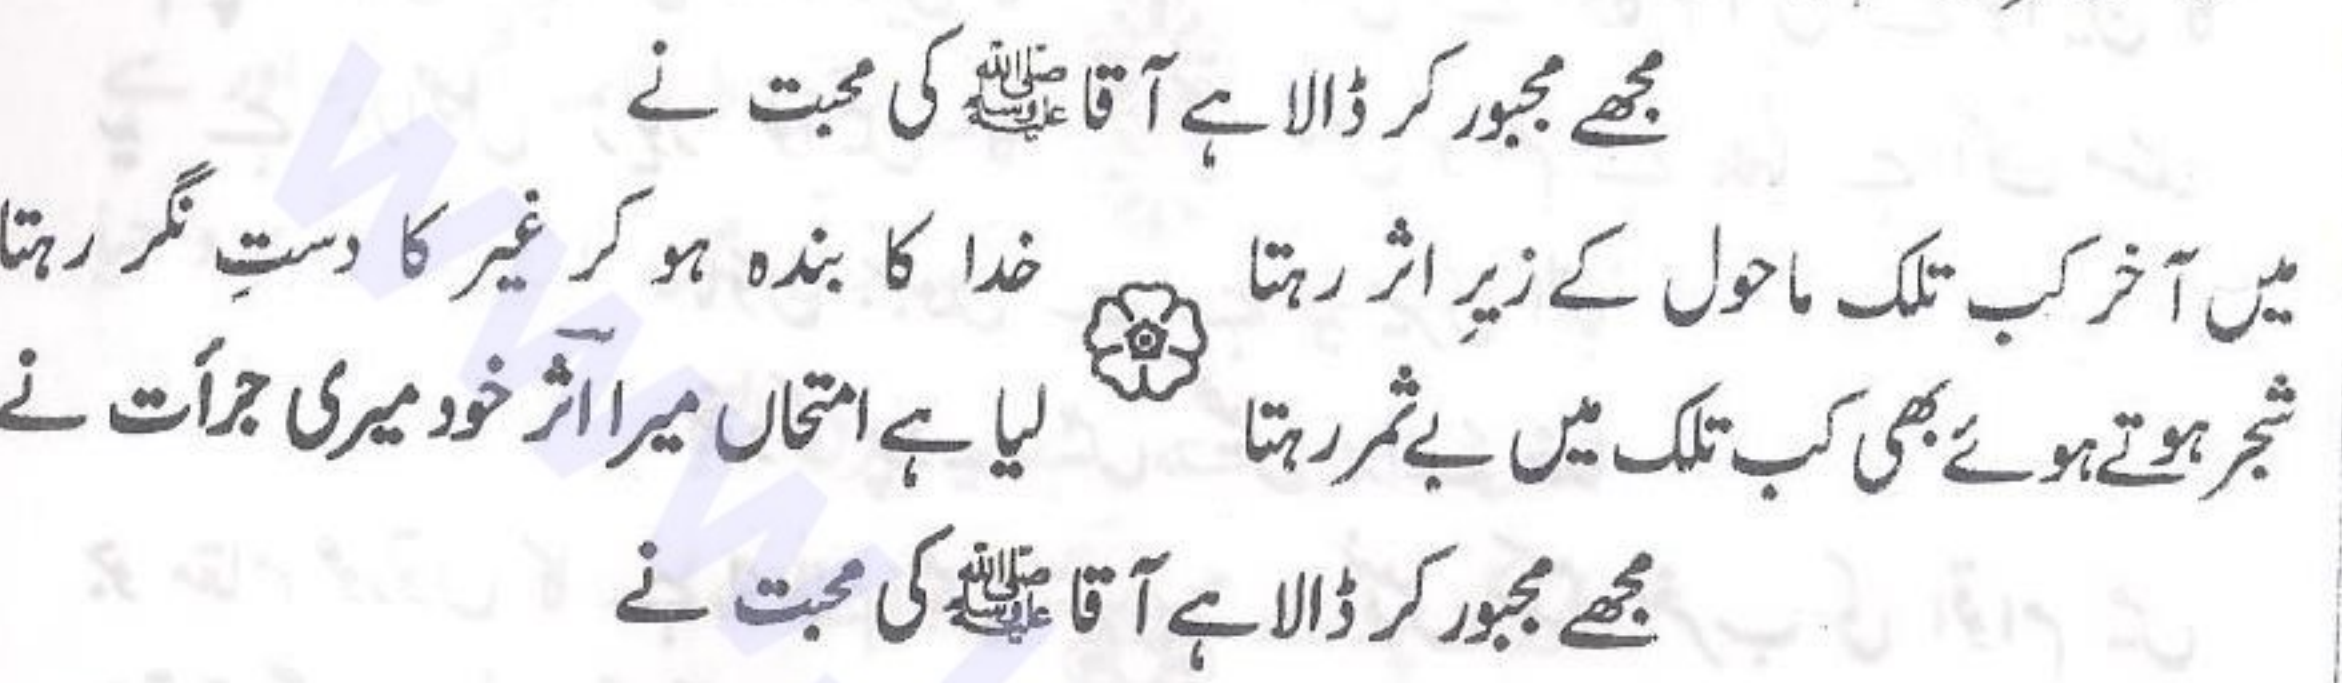 مجھے مجبور کر ڈالا ہے آقا ﷺ کی محبت نے
میں آخر کب تلک ماحول کے زیرِ اثر رہتا خدا کا بندہ ہو کر غیر کا دستِ نگر رہتا
شجر ہوتے ہوئے بھی کب تلک میں بے ثمر رہتا لیا ہے امتحاں میرا آثر خود میری جرأت نے
مجھے مجبور کر ڈالا ہے آقا ﷺ کی محبت نے